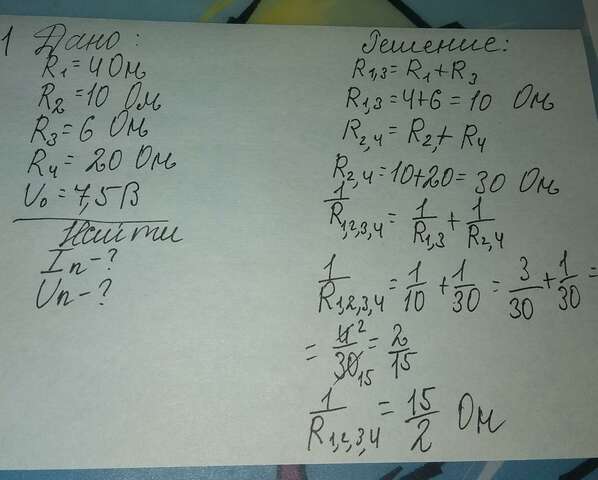 1 Дано:
R1 = 4 Ом
R2 = 10 Ом
R3 = 6 Ом
R4 = 20 Ом
U0 = 7,5 В
Найти
In - ?
Un - ?
Решение:
R1,3 = R1 + R3
R1,3 = 4+6 = 10 Ом
R2,4 = R2 + R4
R2,4 = 10+20 = 30 Ом
1/R1,2,3,4 = 1/R1,3 + 1/R2,4
1/R1,2,3,4 = 1/10 + 1/30 = 3/30 + 1/30 =
= 4 2/30 15 = 2/15
1/R1,2,3,4 = 15/2 Ом